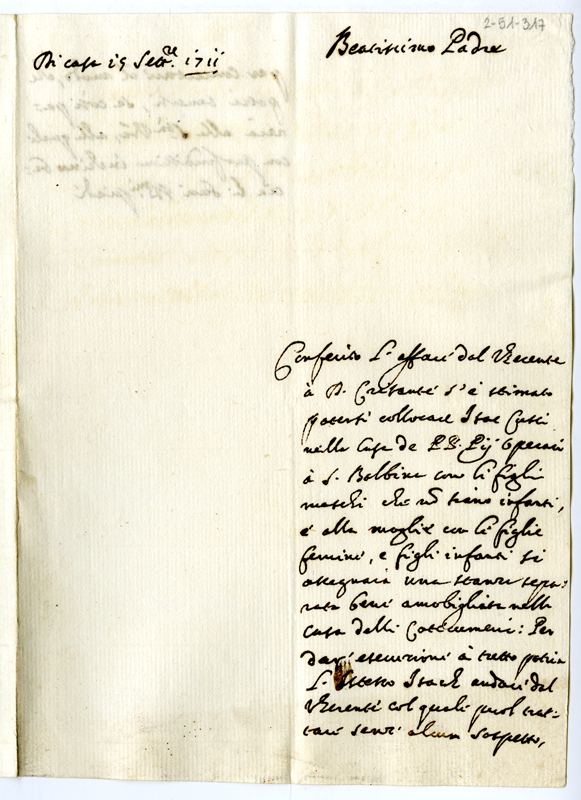 2-51-317
Di casa 15 Sett.re 1711
Beatissimo Padre
Conferito l'affare del Vicerente
à D. Cristante s'è stimato
potersi collocare Isac Custi
nella Casa de PP. Pij Operari
à S. Balbina con li figli
maschi che nõ siano infanti,
e alla moglie con le figlie
femine, e figli infanti si
assegnarà una stanza sepa-
rata bene amobigliata nella
Casa delli Catecumeni: Per
dare esecuzione à tutto potria
L'istesso Isach andare dal
Vicerente col quale puol trat-
tare senza alcun sospetto,